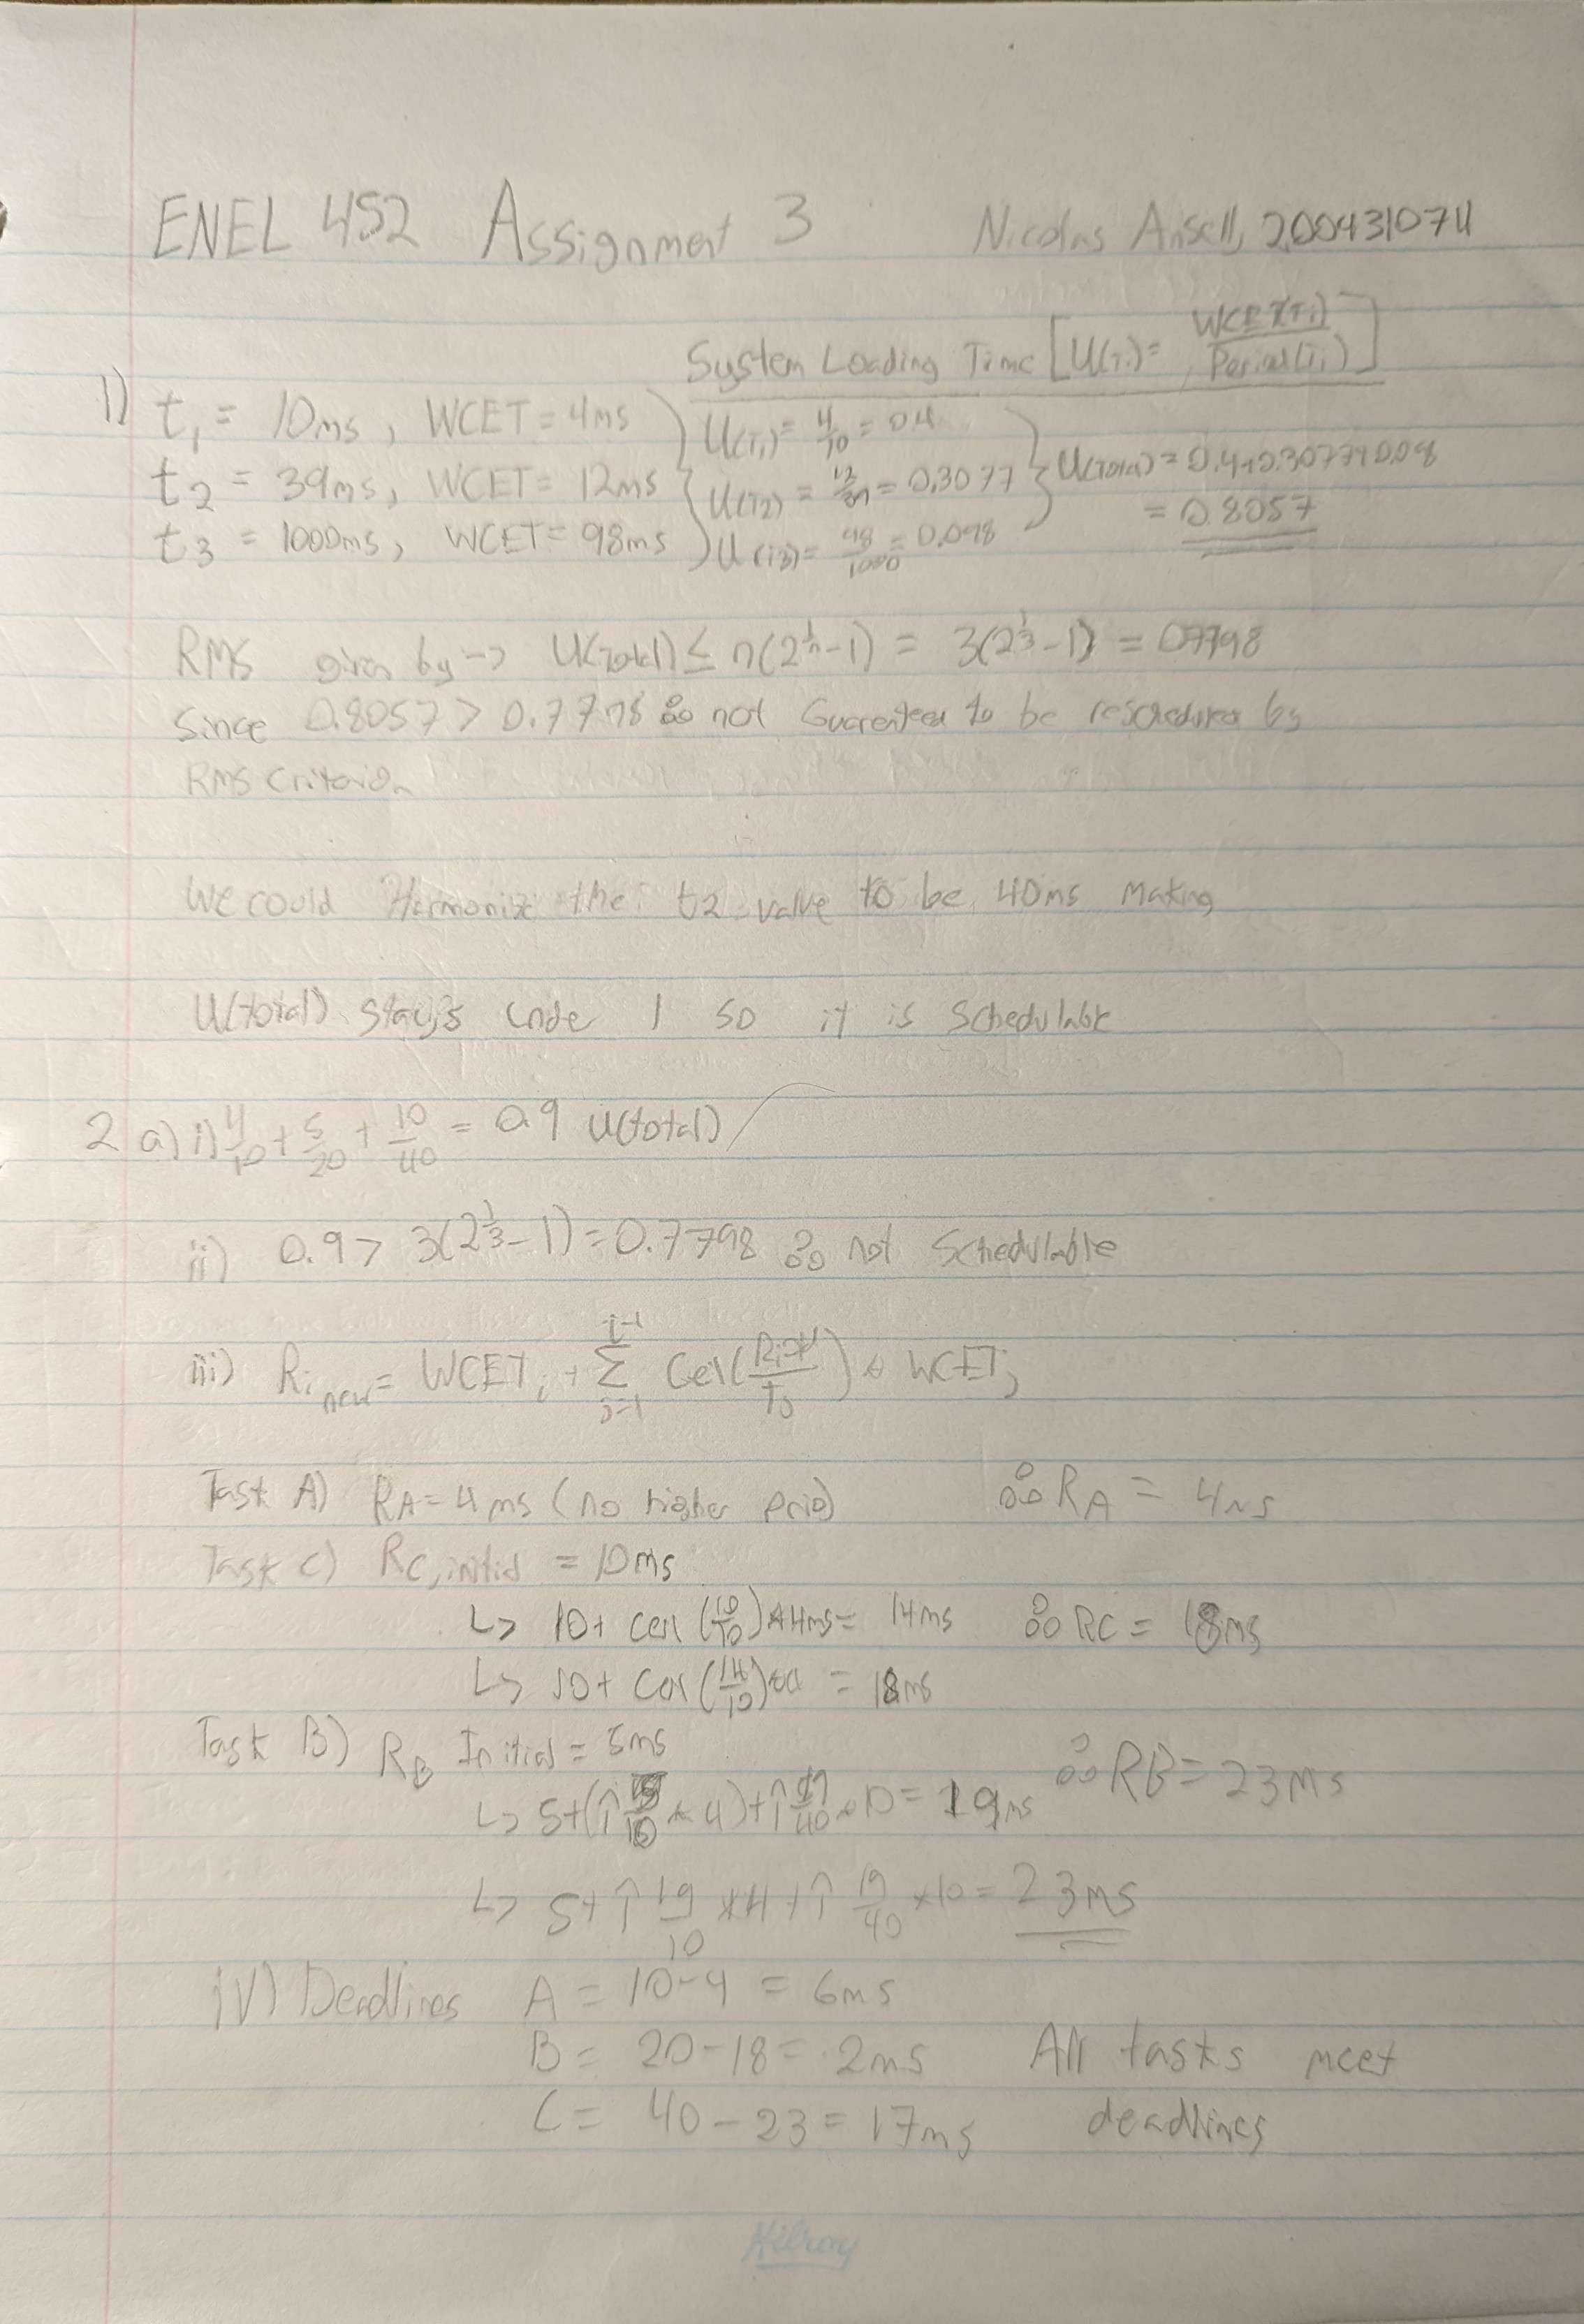 ENEL 452 Assignment 3 Nicolas Ansell, 200431074
System Loading Time [U(Ti) = WCET(Ti) / Period(Ti)]
1) t1 = 10ms, WCET = 4ms U(T1) = 4/10 = 0.4
t2 = 39ms, WCET = 12ms U(T2) = 12/39 = 0.3077 U(Total) = 0.4+0.3077+0.098
t3 = 1000ms, WCET = 98ms U(T3) = 98/1000 = 0.098 = 0.8057
RMS given by -> U(total) ≤ n(2^(1/n) - 1) = 3(2^(1/3) - 1) = 0.7798
Since 0.8057 > 0.7798 ∴ not Guarenteed to be by
RMS
We could Harmonize the t2 value to be 40ms making
U(total) stays under 1 so it is schedulable
2 a) i) 4/10 + 5/20 + 10/40 = 0.9 U(total)
ii) 0.9 > 3(2^(1/3) - 1) = 0.7798 ∴ not Schedulable
iii) Ri new = WCETi + Σ(j=1, i-1) Ceil( / Tj) * WCETj
Task A) RA = 4ms (no higher prio) ∴ RA = 4ms
Task C) RC, initial = 10ms
↳ 10 + ceil (10/10) * 4ms = 14ms ∴ RC = 18ms
↳ 10 + ceil (14/10) * 4 = 18ms
Task B) RB Initial = 5ms
↳ 5+(↑ /10 * 4)+↑ /40 * 10 = 19ms ∴ RB = 23ms
↳ 5+↑ 19/10 *4+↑ 19/40 ×10 = 23ms
iv) Deadlines A = 10-4 = 6ms
B = 20-18 = 2ms All tasks meet
C = 40-23 = 17ms deadlines
Hilroy